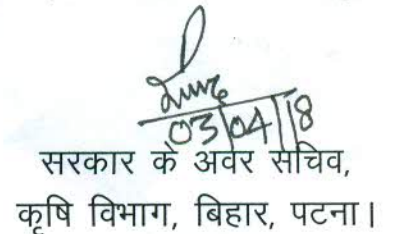 03/04/18
सरकार के अवर सचिव,
कृषि विभाग, बिहार, पटना।